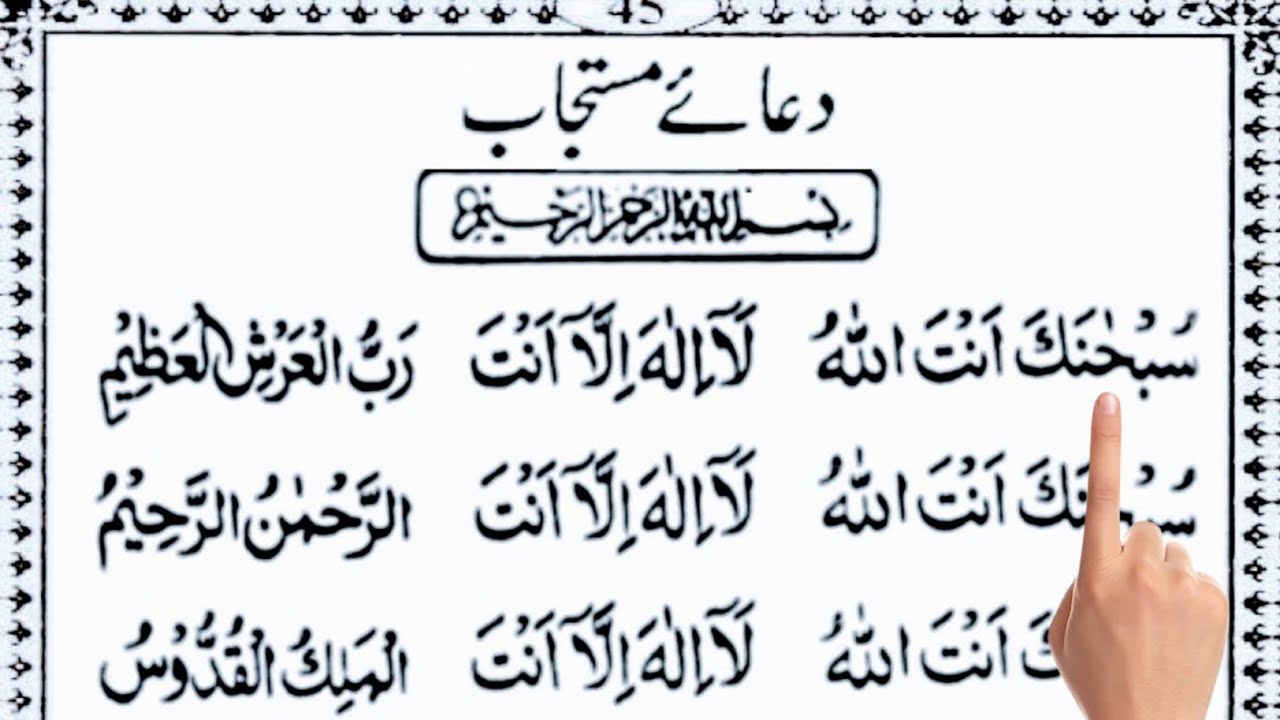 45
دعائے مستجاب
بسم الله الرحمن الرحيم
سُبْحٰنَكَ اَنْتَ اللّٰهُ لَآ اِلٰهَ اِلَّآ اَنْتَ رَبُّ الْعَرْشِ الْعَظِيْمِ
سُبْحٰنَكَ اَنْتَ اللّٰهُ لَآ اِلٰهَ اِلَّآ اَنْتَ الرَّحْمٰنُ الرَّحِيْمُ
اَنْتَ اللّٰهُ لَآ اِلٰهَ اِلَّآ اَنْتَ الْمَلِكُ الْقُدُّوْسُ